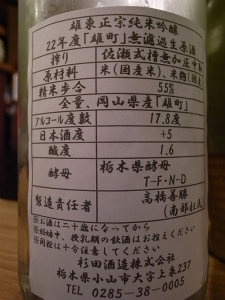 雄東正宗純米吟醸
22年度「雄町」無濾過生原酒
搾り 佐瀬式槽無加圧中取
原材料 米(国産米)、米麹(国産米)
精米歩合 55%
全量、岡山県産「雄町」
アルコール度数 17.8度
日本酒度 +5
酸度 1.6
酵母 栃木県酵母
T-F-N-D
製造責任者 高橋善勝
(南部杜氏)
※お酒は二十歳になってから
※妊娠中、授乳期の飲酒はお控えください
※開栓は十分注意してください
杉田酒造株式会社
栃木県小山市大字上泉237
TEL 0285-38-0005